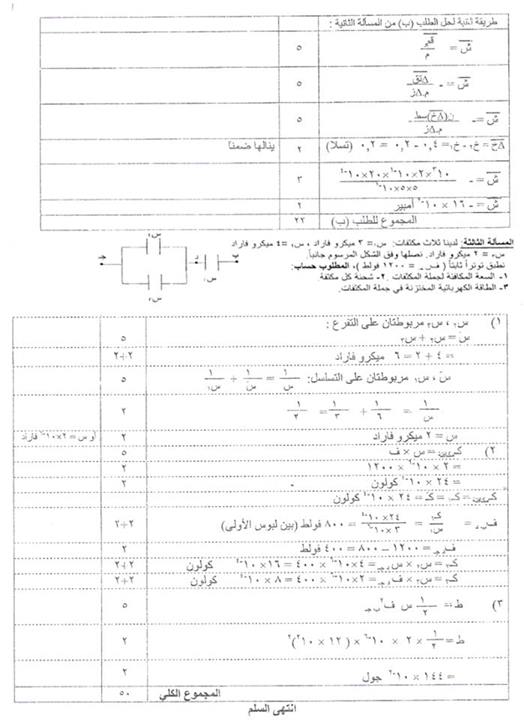 طريقة ثانية لحل الطلب (ب) من المسألة الثانية :
ش = قو / م ٥
ش = - Δلق / م.Δز ٥
ش = - ن(Δخ)سط / م.Δز ٥
Δخ = خ٢ - خ١ = ٠,٤ - ٠,٢ = ٠,٢ (تسلا) ٢ ينالها ضمناً
٣
ش = - ١٦ × ١٠-٢ أمبير ٢
المجموع للطلب (ب) ٢٢
المسألة الثالثة: لدينا ثلاث مكثفات: س١= ٣ ميكرو فاراد ، س٢= ٤ ميكرو فاراد
س٣ = ٢ ميكرو فاراد. نصلها وفق الشكل المرسوم جانباً.
نطبق توتراً ثابتاً ( ف = ١٢٠٠ فولط )، المطلوب حساب:
١- السعة المكافئة لجملة المكثفات .٢- شحنة كل مكثفة.
٣- الطاقة الكهربائية المختزنة في جملة المكثفات.
س٢
س١
س٣
١) س٢ ، س٣ مربوطتان على التفرع :
سَ = س٢ + س٣ ٥
= ٤ + ٢ = ٦ ميكرو فاراد ٢+٢
سَ ، س١ مربوطتان على التسلسل: ١/س = ١/سَ + ١/س١ ٥
١/س = ١/٦ + ١/٣ = ١/٢ ٢
س = ٢ ميكرو فاراد ٢ أو س = ٢×١٠-٦ فاراد
٢) ك = س × ف ٥
= ٢ × ١٠-٦ × ١٢٠٠ ٢
= ٢٤ × ١٠-٤ كولون ٢
ك = ك١ = كَ = ٢٤ × ١٠-٤ كولون
ف = ك١/س١ = ٢٤×١٠-٤ / ٣×١٠-٦ = ٨٠٠ فولط (بين لبوس الأولى) ٢+٢
ف = ١٢٠٠ – ٨٠٠ = ٤٠٠ فولط ٢
ك٢ = س٢ × = ٤×١٠-٦ × ٤٠٠ = ١٦×١٠-٤ كولون ٢+٢
ك٣ = س٣ × ف = ٢×١٠-٦ × ٤٠٠ = ٨ × ١٠-٤ كولون ٢+٢
٣) ط = ١/٢ س ف٢ ٥
ط = ١/٢ × ٢ × ١٠-٦ × (١٢ × ١٠٢)٢ ٢
= ١٤٤ × ١٠-٢ جول ٢
المجموع الكلي ٥٠
انتهى السلم